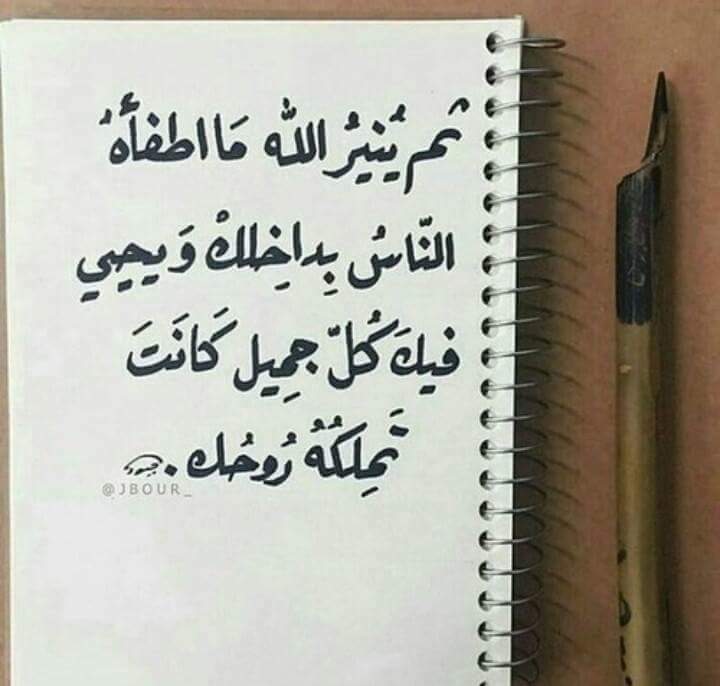 ثم يُنيرُ الله مَا اطفأهُ
النّاسُ بِداخِلكْ وَيحيِي
فيكَ كُلّ جمِيل كَانَتَ
تَمِلكُهُ رُوحُك.
جبور
@JBOUR_